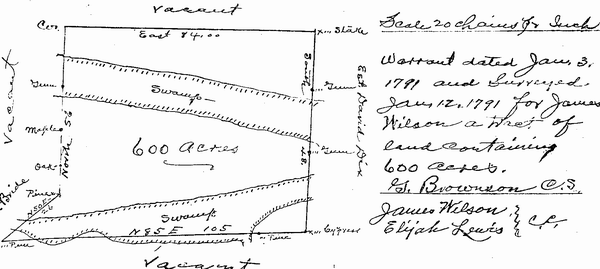 Vacant
Cor
East 84.00
Stake
Scale 20 chains pr Inch
Vacant
Gum
Swamp
South
Gum
Est David Dix
Warrant dated Jan. 3.
1791 and Surveyed
Jan. 12, 1791 for James
Wilson a tract of
land containing
600 acres.
G. Brownson C.S.
James Wilson
Elijah Lewis
C.C.
Maple
North 56
600 Acres
48
Gum
Oak
Pine
Swamp
N85E 105
Pine
Pine
Cypress
Vacant